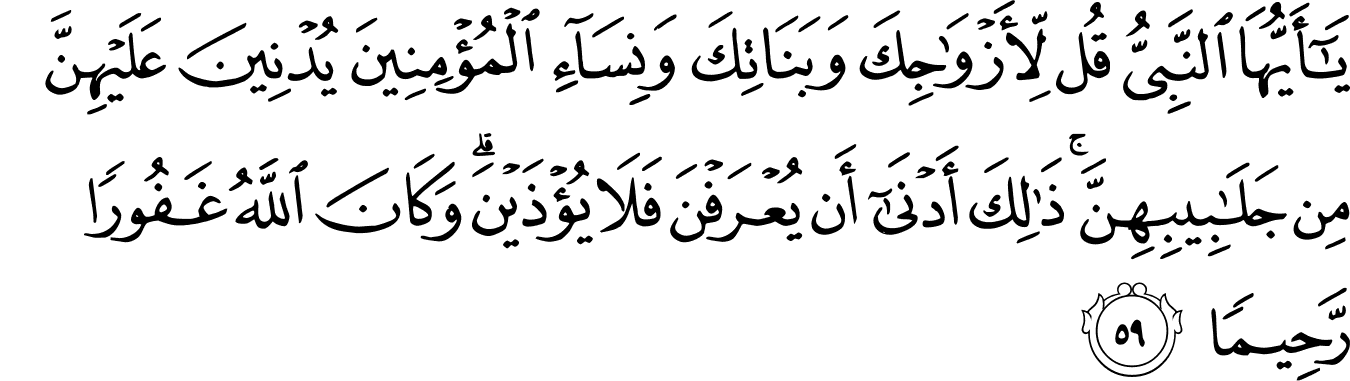 يَـٰٓأَيُّهَا ٱلنَّبِىُّ قُل لِّأَزْوَٰجِكَ وَبَنَاتِكَ وَنِسَآءِ ٱلْمُؤْمِنِينَ يُدْنِينَ عَلَيْهِنَّ
مِن جَلَـٰبِيبِهِنَّ ۚ ذَٰلِكَ أَدْنَىٰٓ أَن يُعْرَفْنَ فَلَا يُؤْذَيْنَ ۗ وَكَانَ ٱللَّهُ غَفُورًا
رَّحِيمًا ٥٩